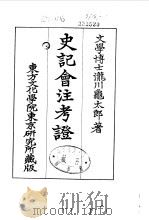 文學博士瀧川龜太郎著
史記會注考證
東方文化學院東京研究所藏版